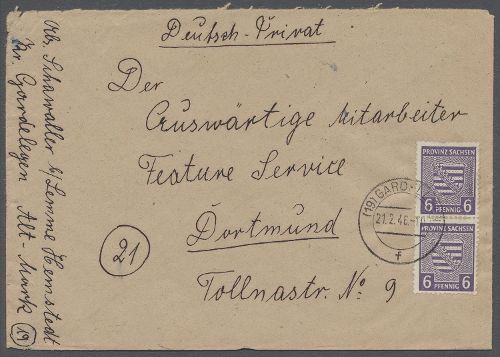 Deutsch-Privat
Der
Auswärtige Mitarbeiter
Feature Service
Dortmund
Tollnastr. No 9
21
Schawaller b/Lemme Hemstedt
Kr. Gardelegen Alt-Mark 19
PROVINZ SACHSEN
6 6
PFENNIG
PROVINZ SACHSEN
6 6
PFENNIG
(19) GARD
21.2.46
f